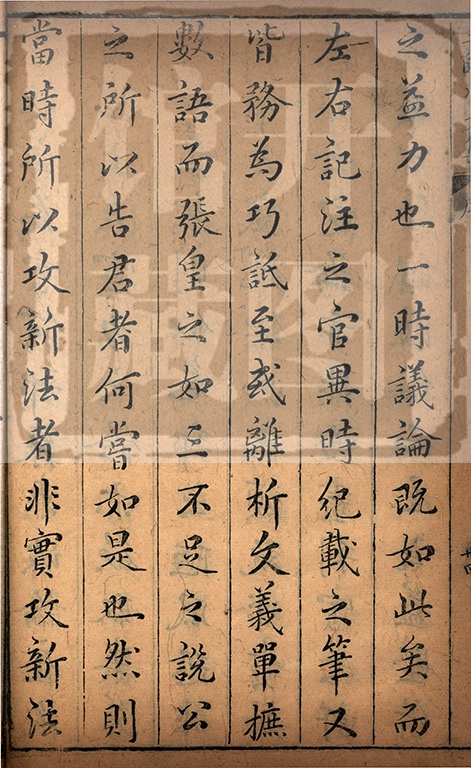 之益力也一時議論既如此矣而
左右記注之官異時紀載之筆又
皆務爲巧詆至或離析文義單摭
數語而張皇之如三不足之說公
之所以告君者何嘗如是也然則
當時所以攻新法者非實攻新法